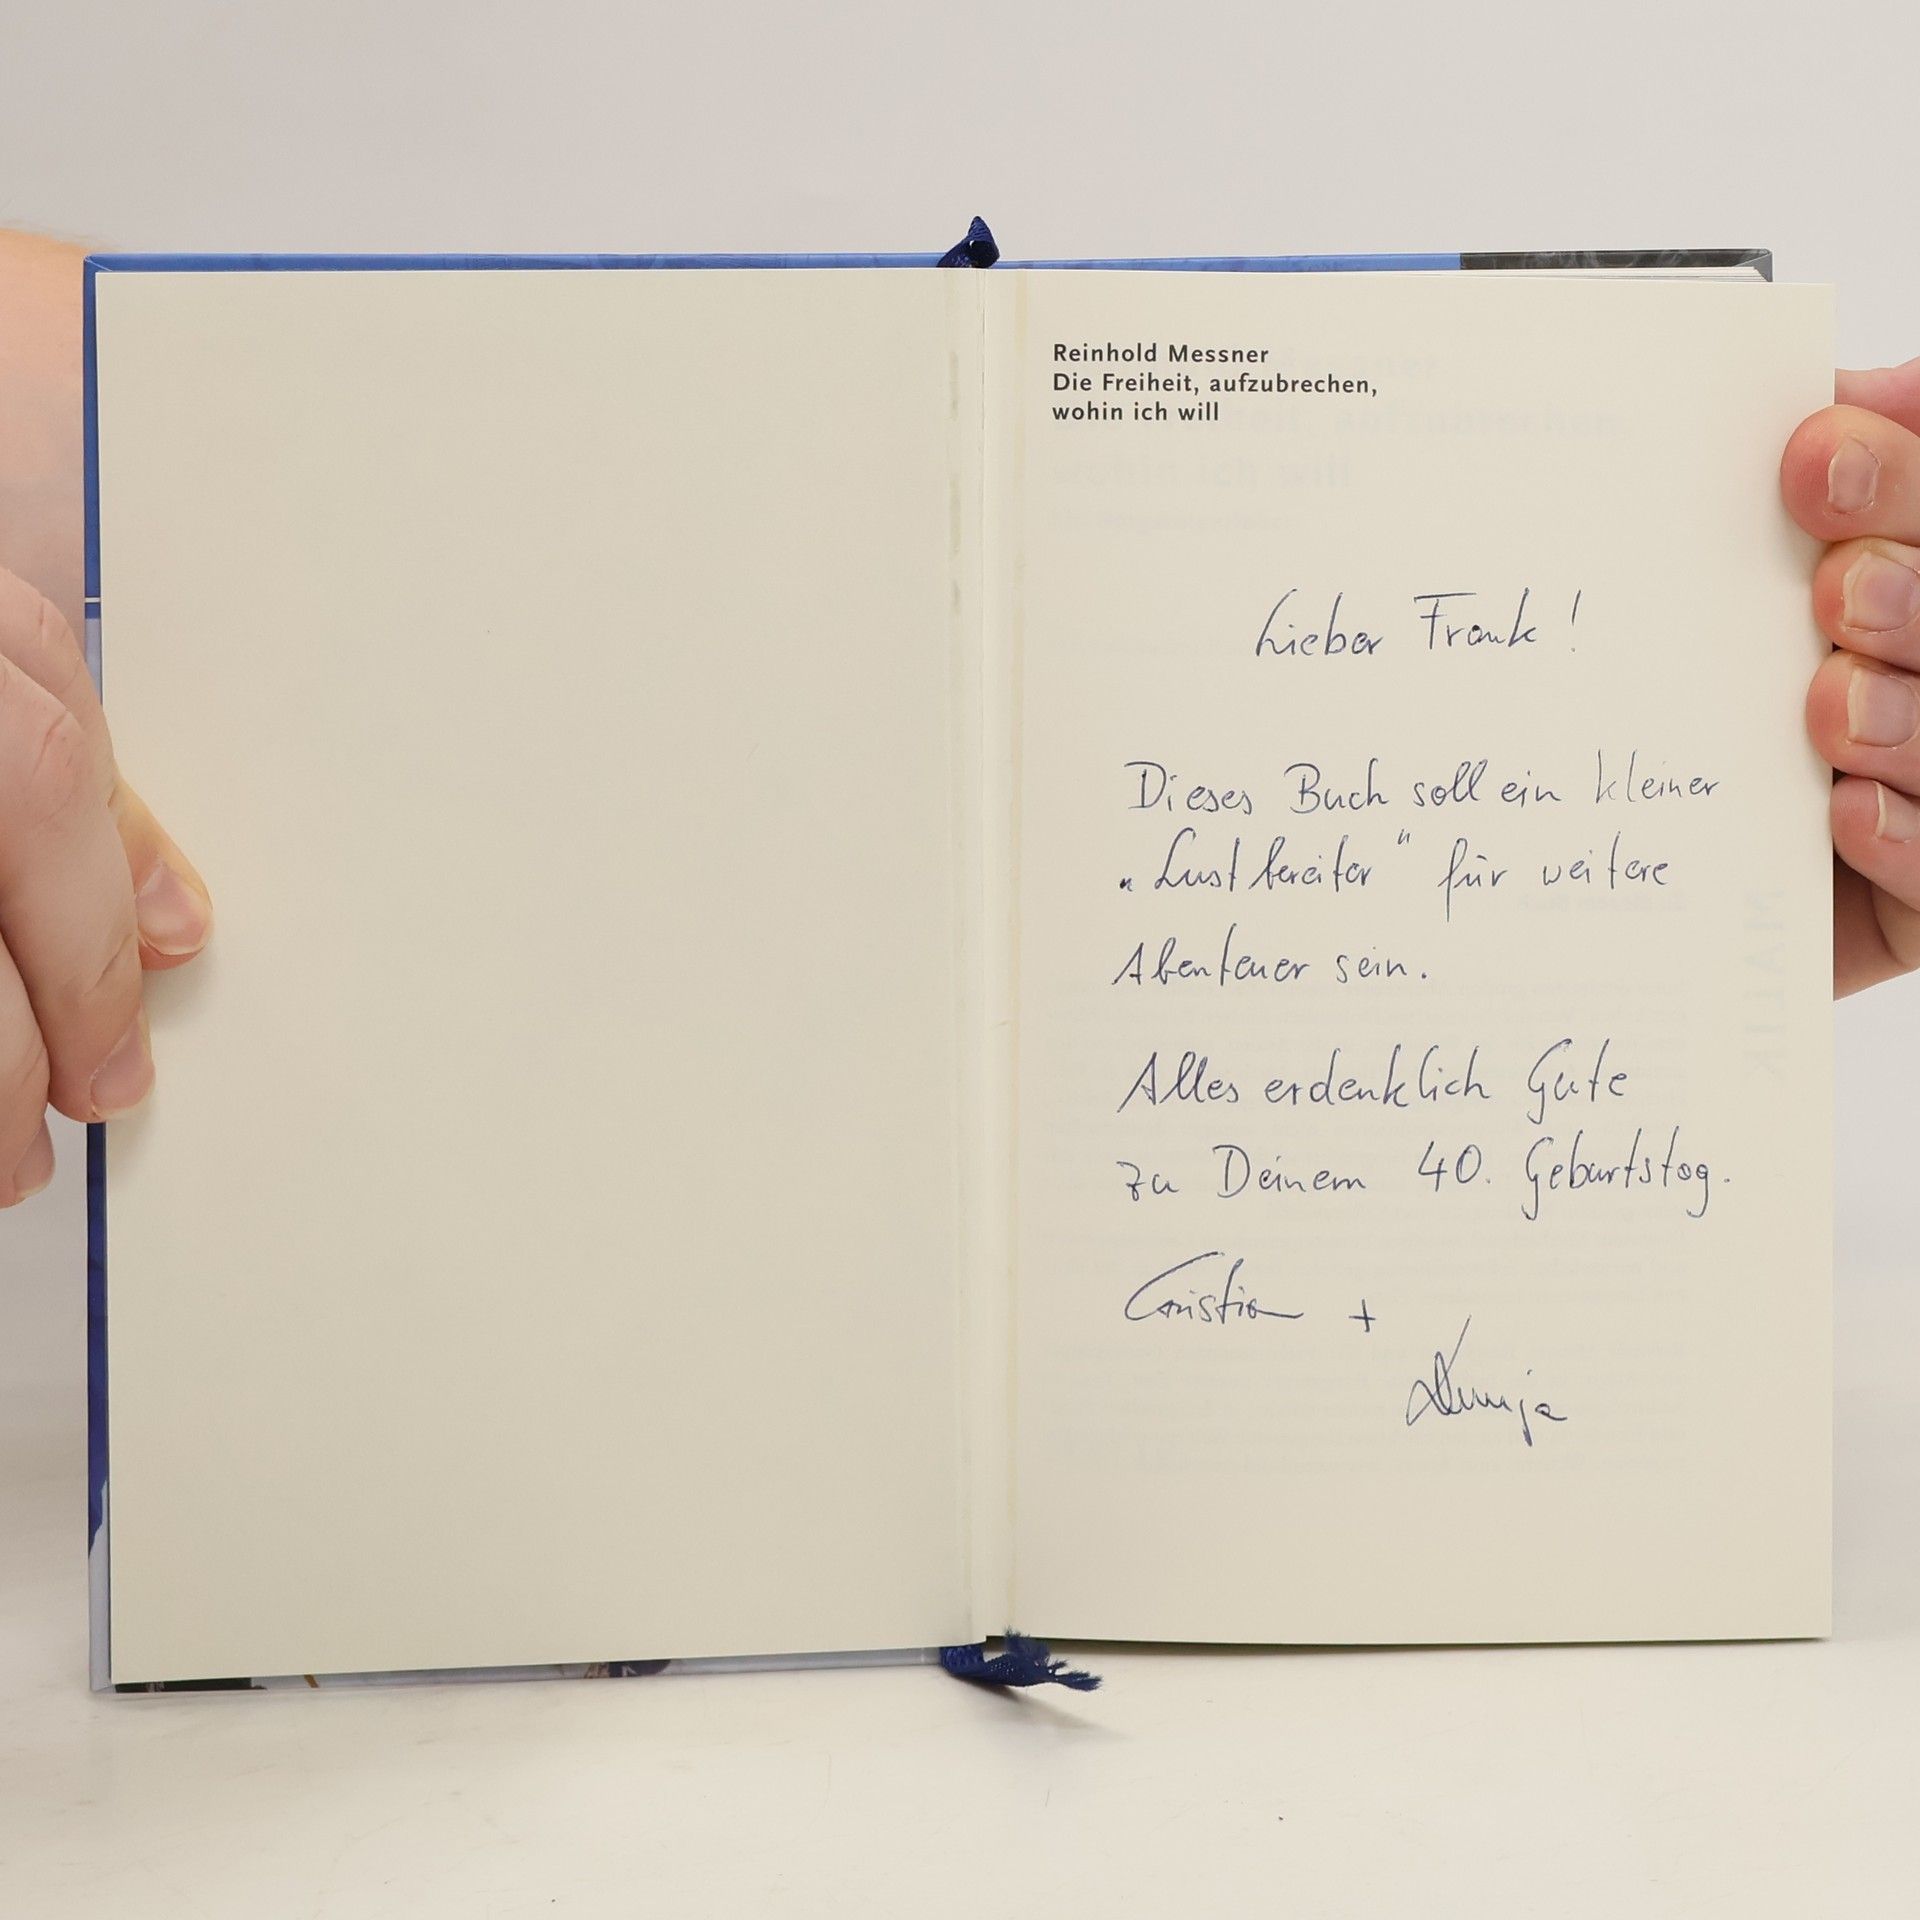 Reinhold Messner
Die Freiheit, aufzubrechen,
wohin ich will
Lieber Frank!
Dieses Buch soll ein kleiner
„Lustbereiter" für weitere
Abenteuer sein.
Alles erdenklich Gute
zu Deinem 40. Geburtstag.
+